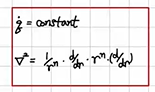 q̇ = constant
∇² = 1/rⁿ · d/dr · rⁿ · (d/dr)